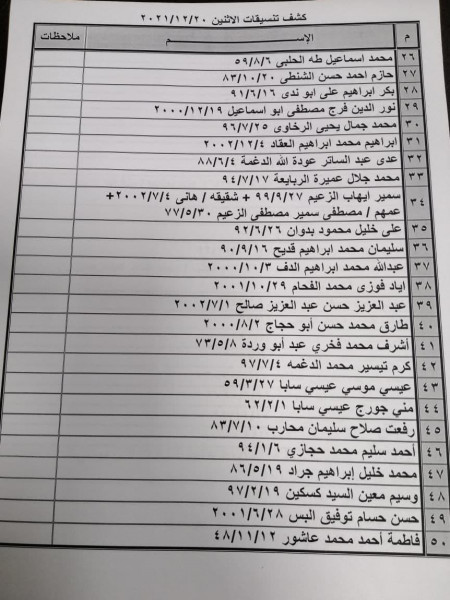 كشف تنسيقات الاثنين ٢٠٢١/١٢/٢٠
م الإســـم ملاحظات
٢٦ محمد اسماعيل طه الحلبى ٥٩/٨/٦
٢٧ حازم احمد حسن الشنطى ٨٣/١٠/٢٠
٢٨ بكر ابراهيم على ابو ندى ٩١/٦/١٦
٢٩ نور الدين فرج مصطفى ابو اسماعيل ٢٠٠٠/١٢/١٩
٣٠ محمد جمال يحيى الرخاوى ٩٦/٧/٢٥
٣١ ابراهيم محمد ابراهيم العقاد ٢٠٠٢/١٢/٤
٣٢ عدى عبد الساتر عودة الله الدغمة ٨٨/٦/٤
٣٣ محمد جلال عميرة الربايعة ٩٤/٧/١٧
٣٤ سمير ايهاب الزعيم ٩٩/٩/٢٧ + شقيقه / هانى ٢٠٠٢/٧/٤+
عمهم / مصطفى سمير مصطفى الزعيم ٧٧/٥/٣٠
٣٥ على خليل محمود بدوان ٩٢/٦/٢٦
٣٦ سليمان محمد ابراهيم قديح ٩٠/٩/١٦
٣٧ عبدالله محمد ابراهيم الدف ٢٠٠٠/١٠/٣
٣٨ اياد فوزى محمد الفحام ٢٠٠١/١٠/٢٩
٣٩ عبد العزيز حسن عبد العزيز صالح ٢٠٠٢/٧/١
٤٠ طارق محمد حسن أبو حجاج ٢٠٠٠/٨/٢
٤١ أشرف محمد فخري عبد أبو وردة ٧٣/٥/٨
٤٢ كرم تيسير محمد الدغمه ٩٧/٧/٤
٤٣ عيسي موسي عيسي سابا ٥٩/٣/٢٧
٤٤ مني جورج عيسي سابا ٦٢/٢/١
٤٥ رفعت صلاح سليمان محارب ٨٣/٧/١٠
٤٦ أحمد سليم محمد حجازي ٩٤/١/٦
٤٧ محمد خليل إبراهيم جراد ٨٦/٥/١٩
٤٨ وسيم معين السيد كسكين ٩٧/٢/١٩
٤٩ حسن حسام توفيق البس ٢٠٠١/٦/٢٨
٥٠ فاطمة أحمد محمد عاشور ٤٨/١١/١٢